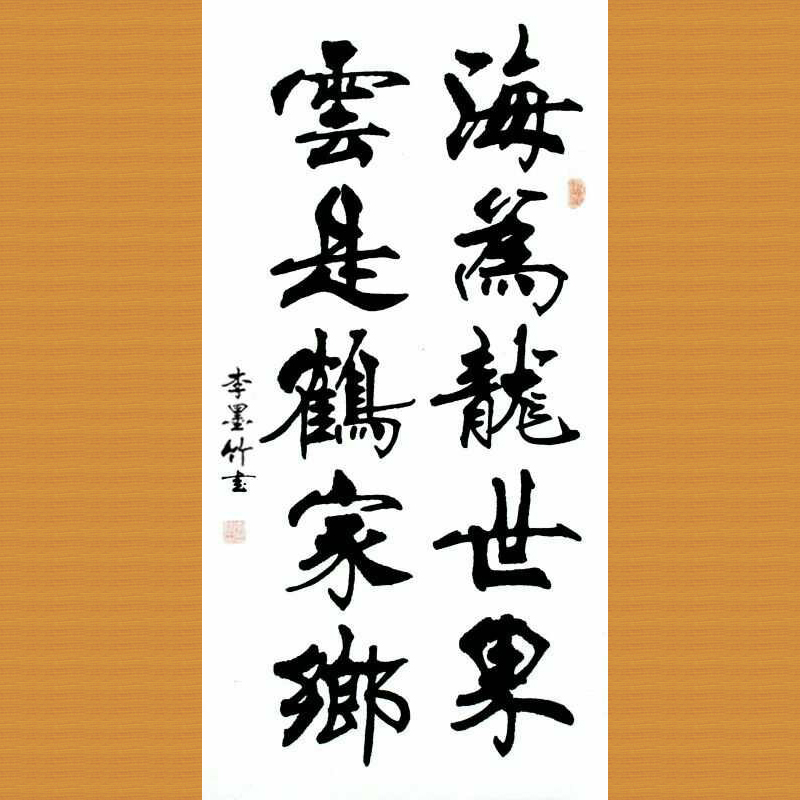 海為龍世界
雲是鶴家鄉
李墨竹书